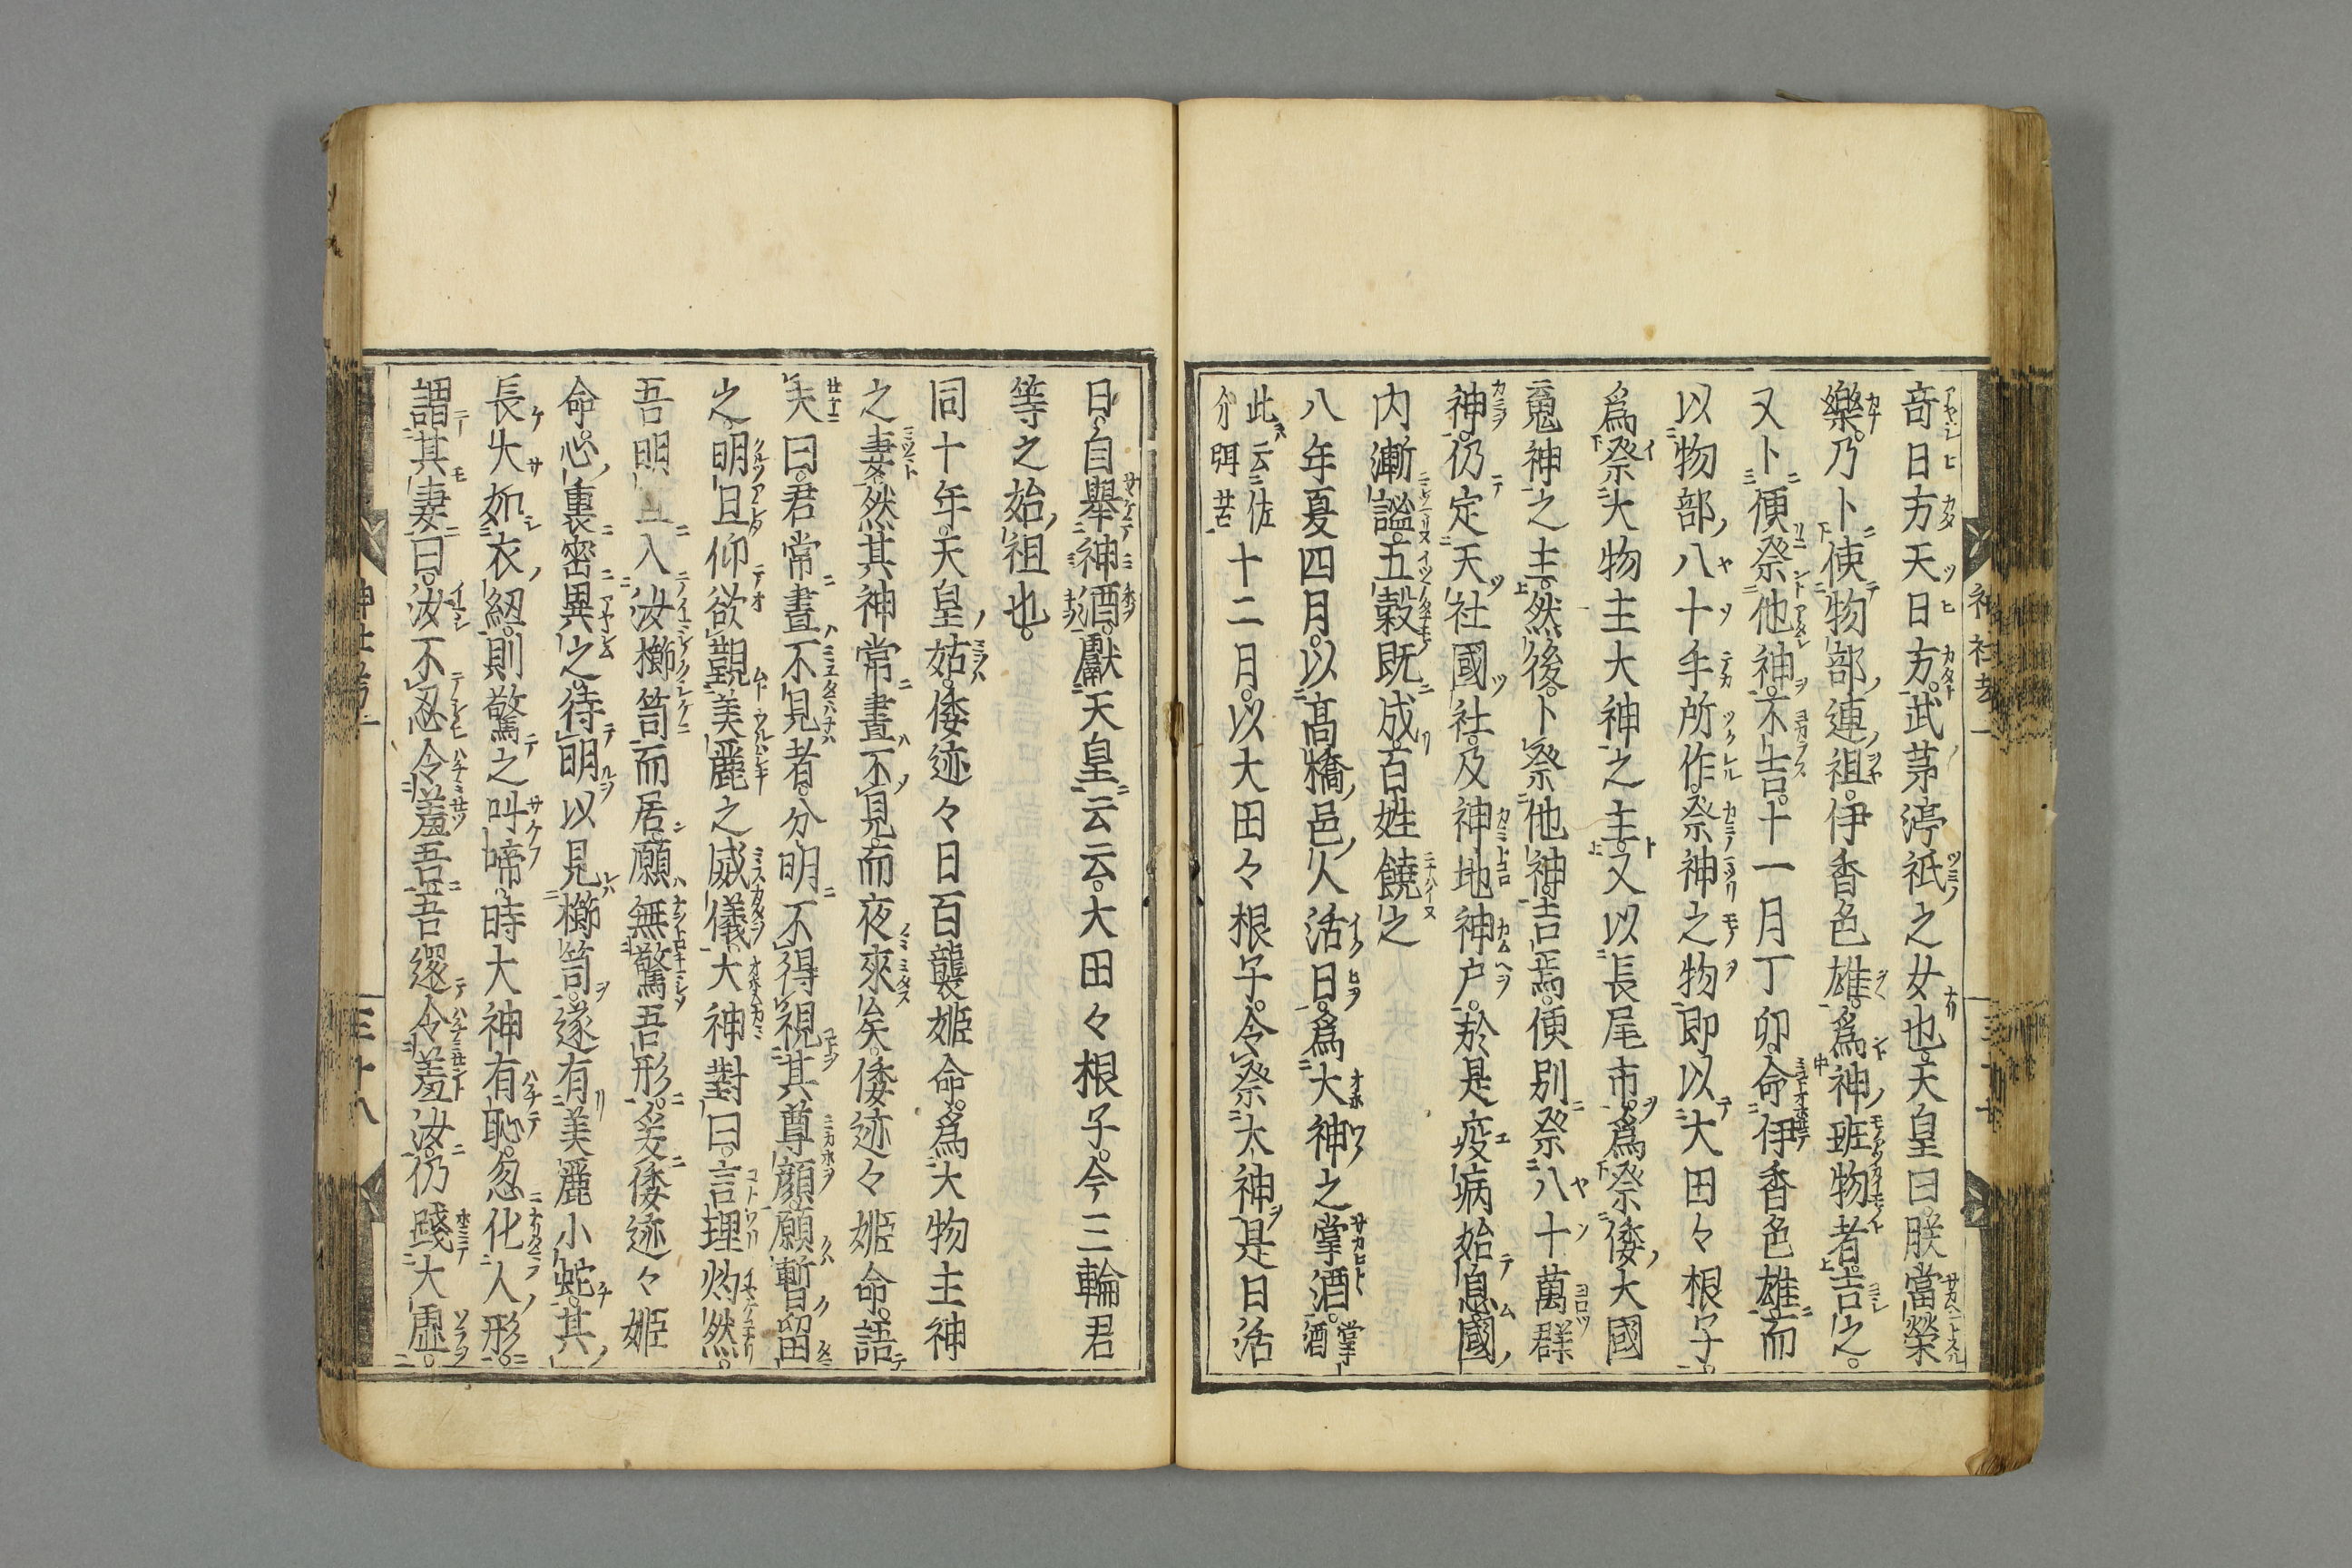 奇日方天日方武茅渟祇之女也天皇曰朕當榮
樂乃卜使物部連祖伊香色雄爲神班物者吉之
又卜便祭他神不吉十一月丁卯命伊香色雄而
以物部八十手所作祭神之物即以大田々根子
爲祭大物主大神之主又以長尾市爲祭倭大國
䰟神之主然後卜祭他神吉焉便別祭八十萬群
神仍定天社國社及神地神戸於是疫病始息國
内漸謐五穀既成百姓饒之
八年夏四月以高橋邑人活日爲大神之掌酒掌酒
此云佐介弭苔十二月以大田々根子令祭大神是日活
日自舉神酒獻天皇云云大田々根子今三輪君
等之始祖也
同十年天皇姑倭迹々日百襲姫命爲大物主神
之妻然其神常晝不見而夜來矣倭迹々姫命語
夫曰君常晝不見者分明不得視其尊顔願暫留
之明旦仰欲覲美麗之威儀大神對曰言理灼然
吾明旦入汝櫛笥而居願無驚吾形爰倭迹々姫
命心裏密異之待明以見櫛笥遂有美麗小蛇其
長大如衣紐則驚之叫啼時大神有恥忽化人形
謂其妻曰汝不忍令羞吾吾還令羞汝仍踐大虚
三十八